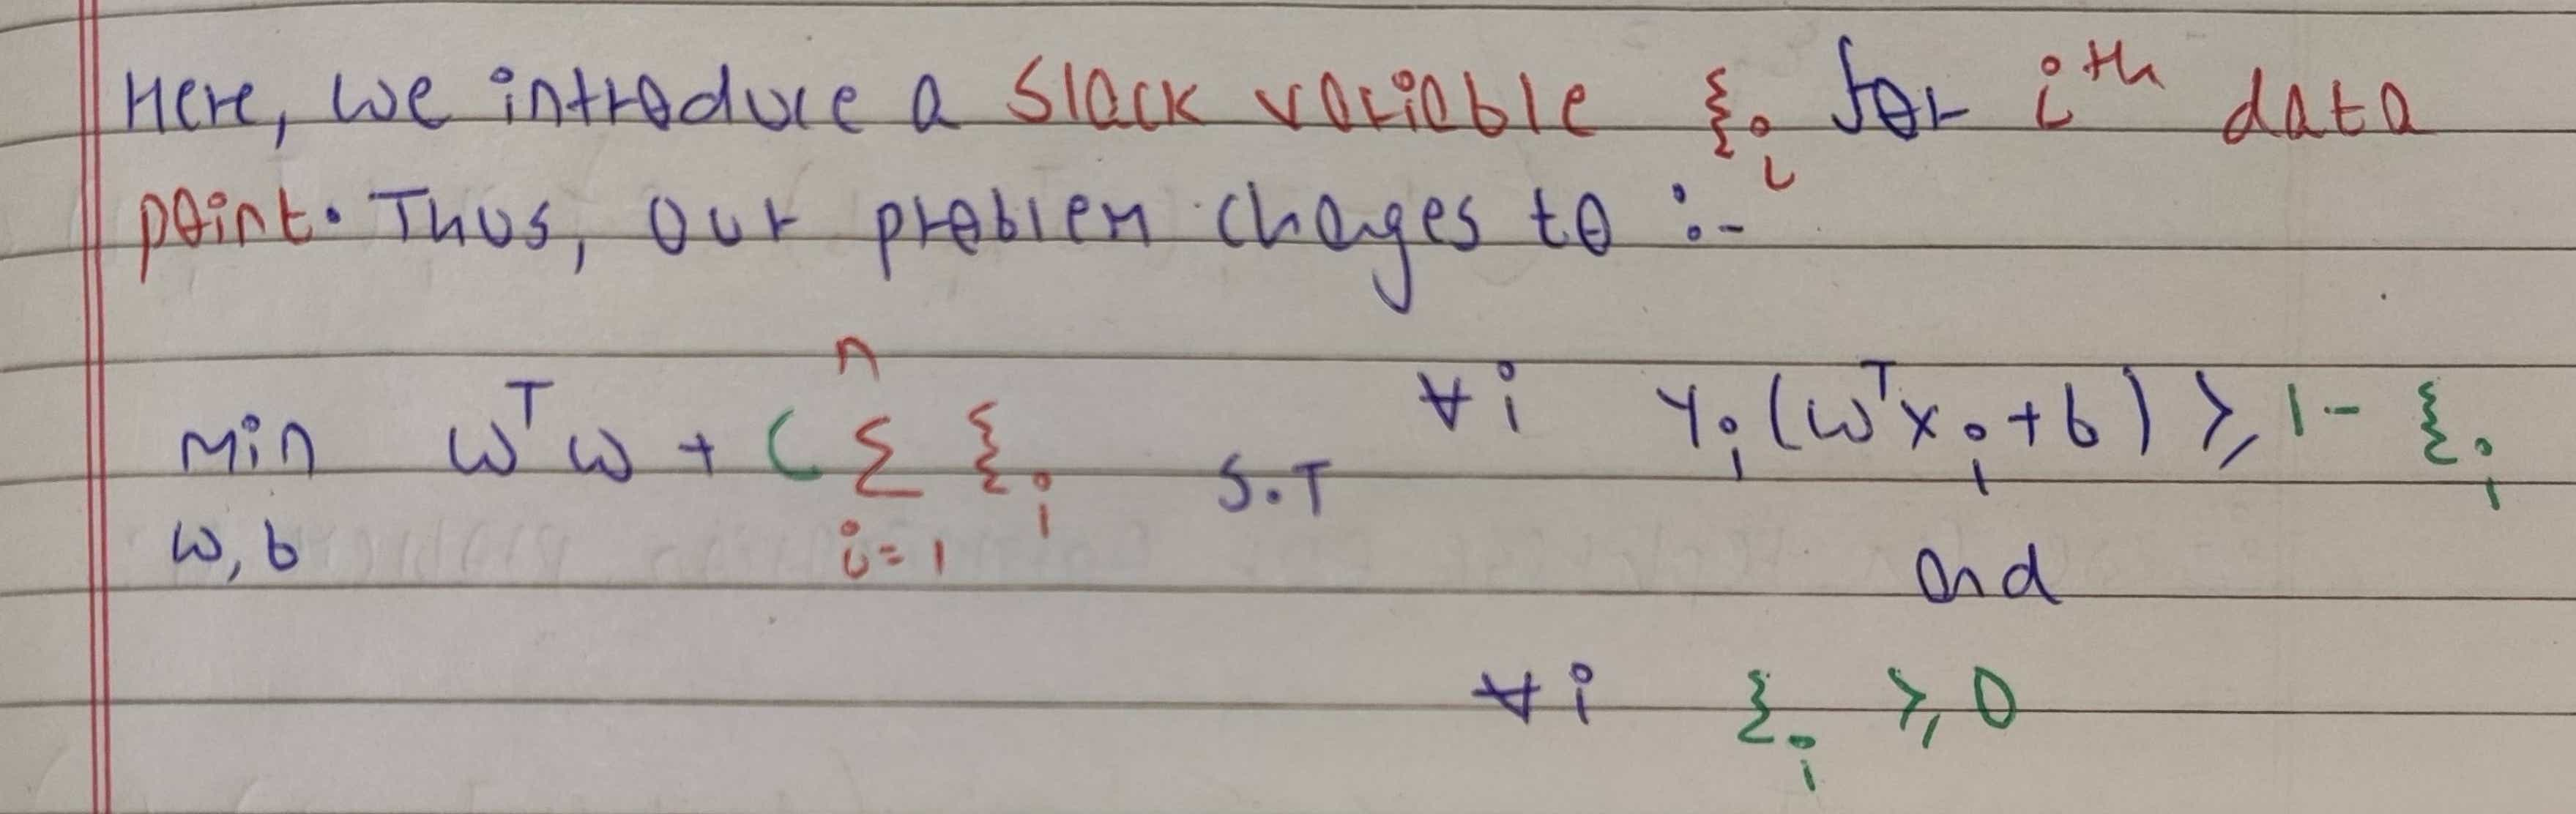 Here, we introduce a slack variable ξᵢ for iᵗʰ data
point. Thus, our problem chages to :-
min wᵀw + C Σ ξᵢ S.T ∀i yᵢ(wᵀxᵢ+b) ≥ 1 - ξᵢ
w,b i=1 n
and
∀i ξᵢ ≥ 0